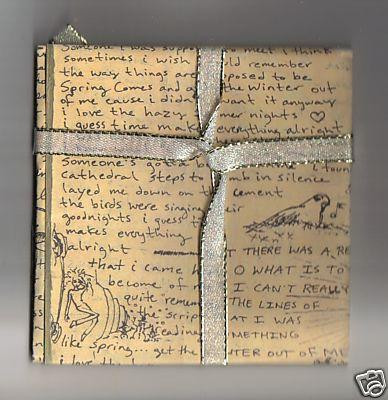 someone i was supro meet i think
sometimes i wish uld remember
the way things are posed to be
Spring Comes and a the winter out
of me cause i didn want it anyway
i love the hazy mer nights ♡
i guess time make everything alright
someone's gotta i foun
cathedral steps to mb in silence
layed me down on t cement
the birds were singing eir
goodnights i guess t
makes everything
alright
T THERE WAS A RE
that i came h O WHAT IS TO
become of I CAN'T REALLY
quite remem THE LINES OF
the scrip AT I WAS
readin METHING
like spring... get the NTER OUT OF ME
i love the h
ebY